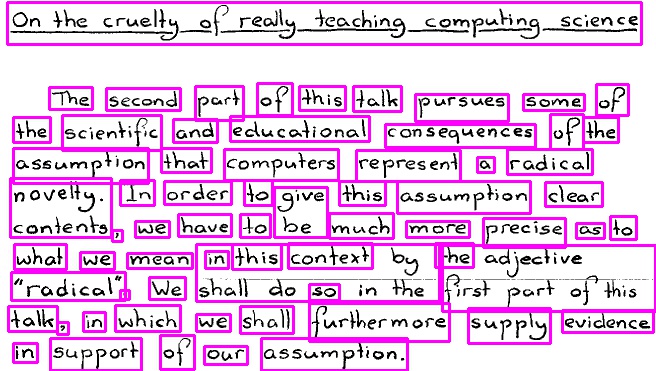 On the cruelty of really teaching computing science
The second part of this talk pursues some of
the scientific and educational consequences of the
assumption that computers represent a radical
novelty. In order to give this assumption clear
contents, we have to be much more precise as to
what we mean in this context by the adjective
"radical". We shall do so in the first part of this
talk, in which we shall furthermore supply evidence
in support of our assumption.